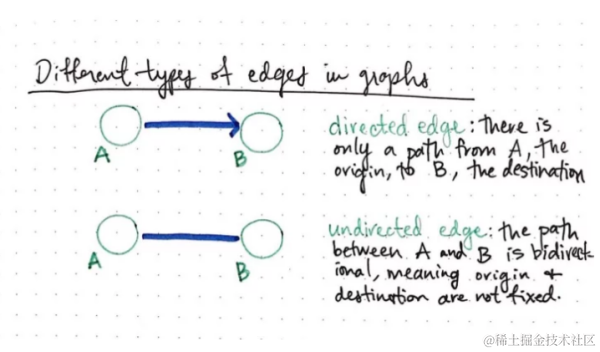 Different types of edges in graphs
A
B
directed edge: there is
only a path from A, the
origin, to B, the destination
A
B
undirected edge: the path
between A and B is bidirect-
ional, meaning origin +
destination are not fixed.
@稀土掘金技术社区